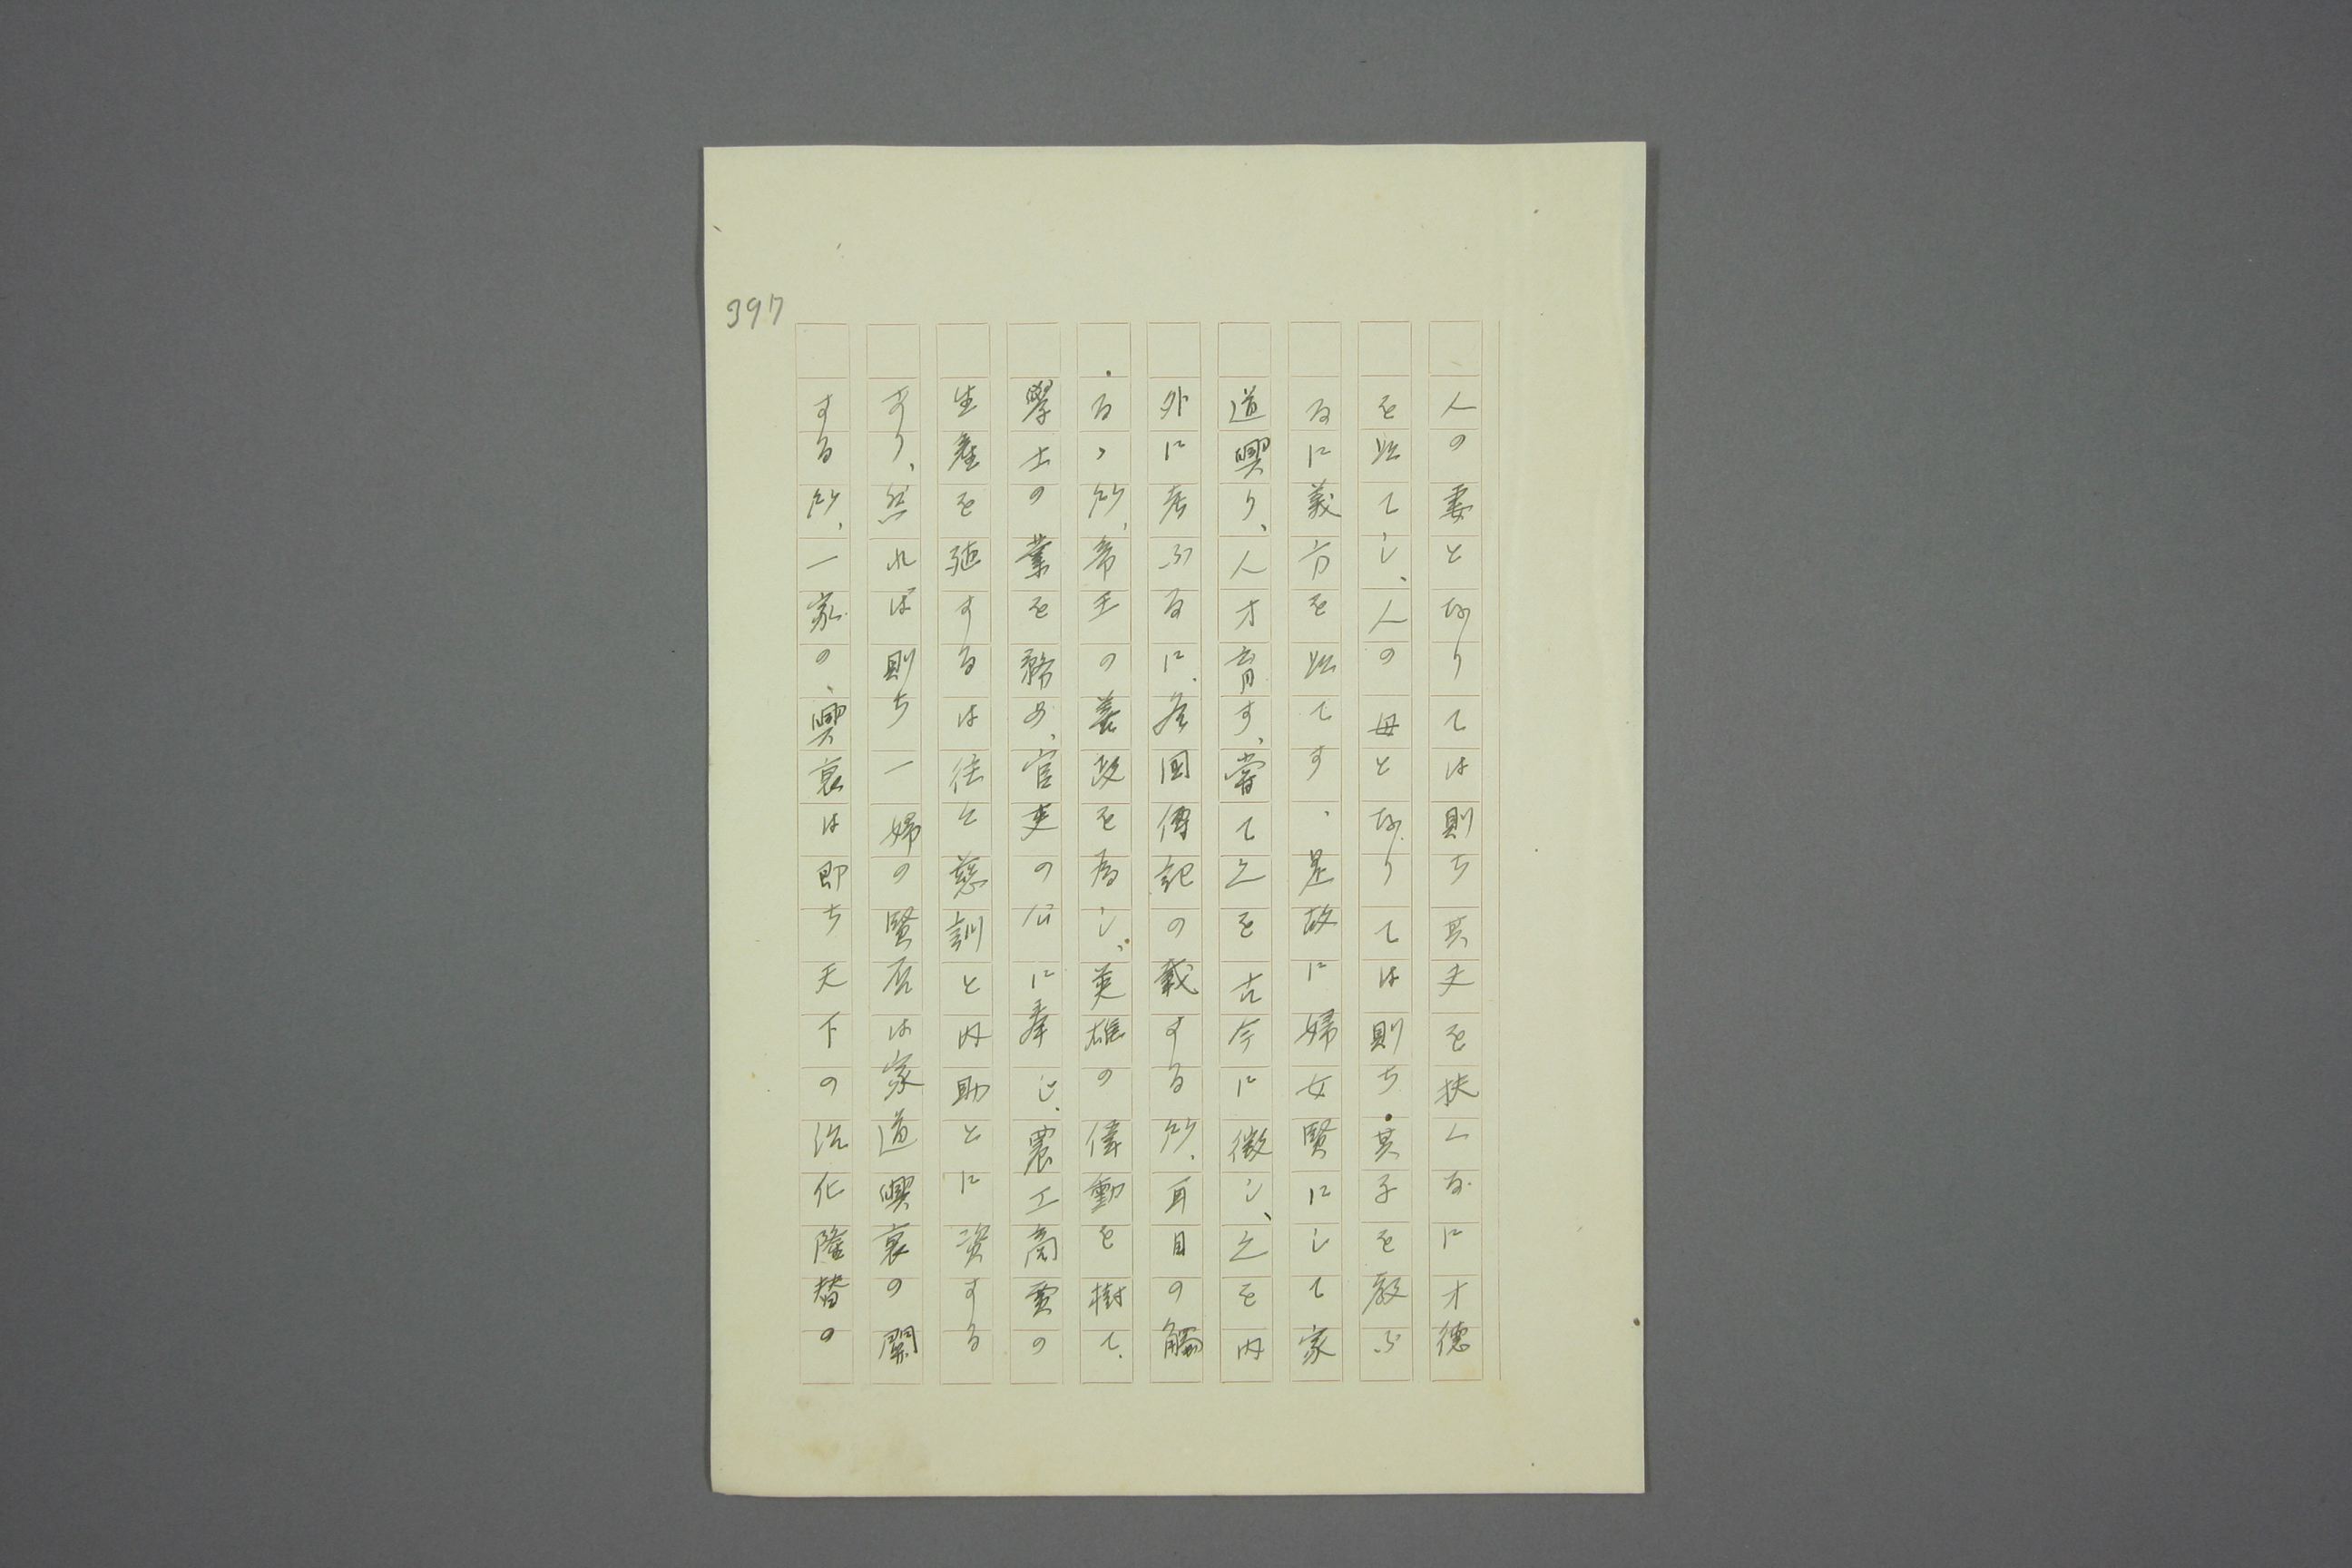 397
人の妻となりては則ち其夫を扶くるに才徳
を以てし、人の母となりては則ち其子を教ふ
るに義方を以てす、是故に婦女賢にして家
道興り、人才育す、嘗て之を古今に徴し、之を内
外に考ふるに、各国傳記の載する所、耳目の觸
るゝ所、帝王の善政を為し、英雄の偉勳を樹て、
學士の業を務め、官吏の公に奉じ、農工商賈の
生産を殖するは往々慈訓と内助とに資する
あり、然れば則ち一婦の賢否は家道興衰の關
する所、一家の興衰は即ち天下の治化隆替の